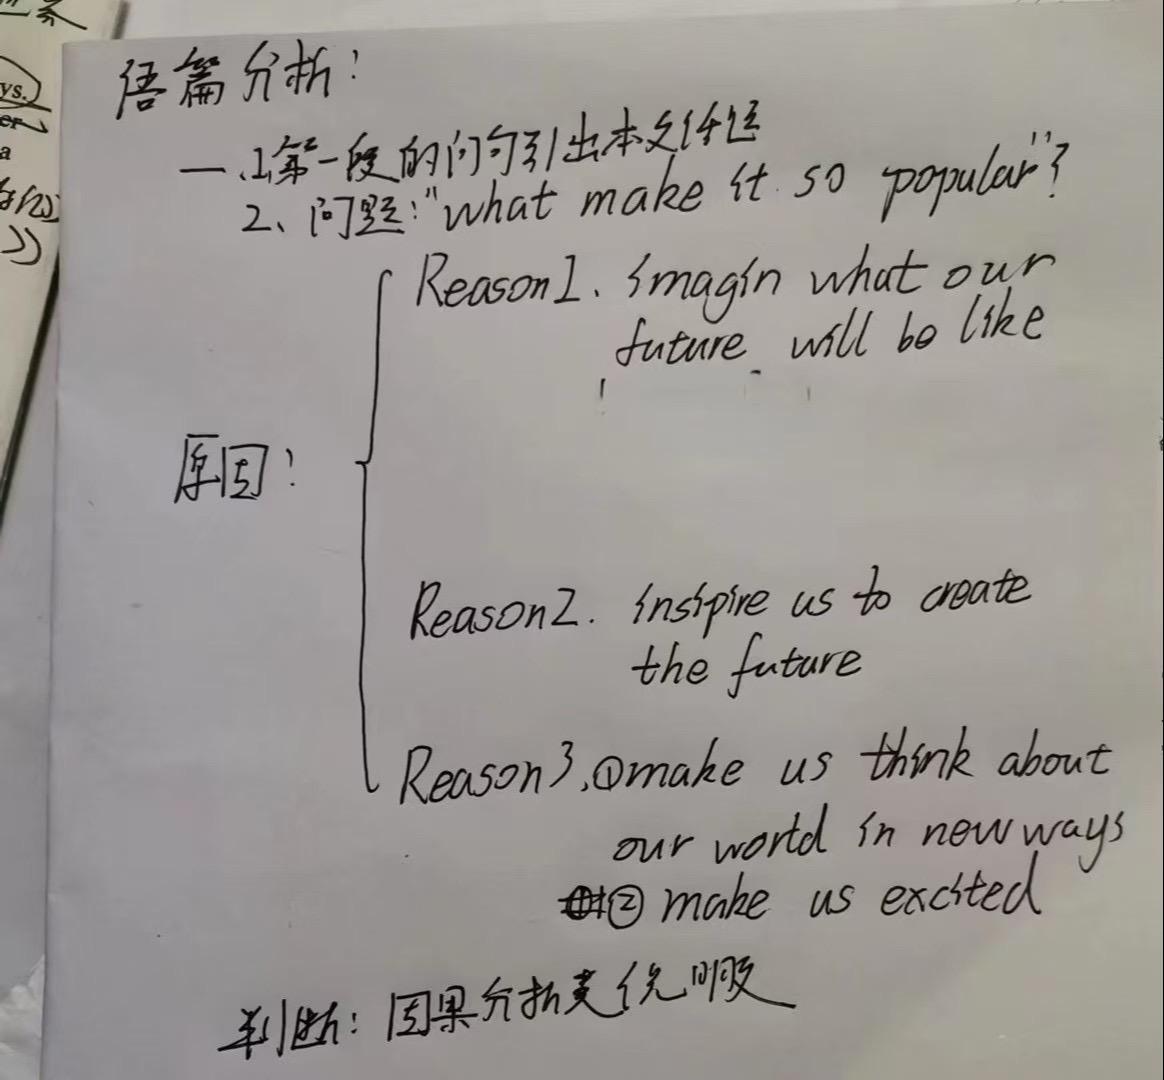 ys.
a
语篇分析:
一、1、第一段的问句引出本文话题
2、问题:"what make it so popular"?
Reason1. imagin what our
future will be like
原因:
Reason2. insipire us to create
the future
Reason3. ①make us think about
our world in new ways
② make us excited
判断: 因果分析类说明文